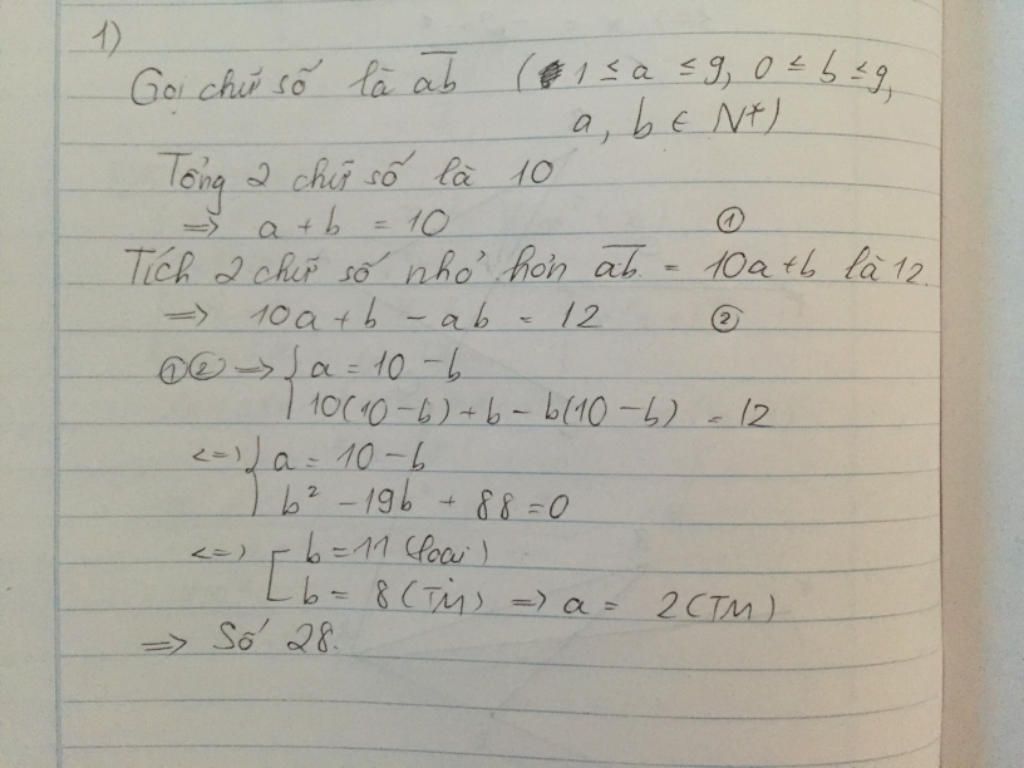 1)
Gọi chữ số là ab̅ ( 1 ≤ a ≤ 9, 0 ≤ b ≤ 9,
a, b ∈ N*)
Tổng 2 chữ số là 10
=> a + b = 10 ①
Tích 2 chữ số nhỏ hơn ab̅ = 10a+b là 12.
=> 10a + b - ab = 12 ②
①② => { a = 10 - b
10(10-b) + b - b(10-b) = 12
<=> { a = 10 - b
b² - 19b + 88 = 0
<=> [ b = 11 (loại)
b = 8 (TM) => a = 2 (TM)
=> Số 28.